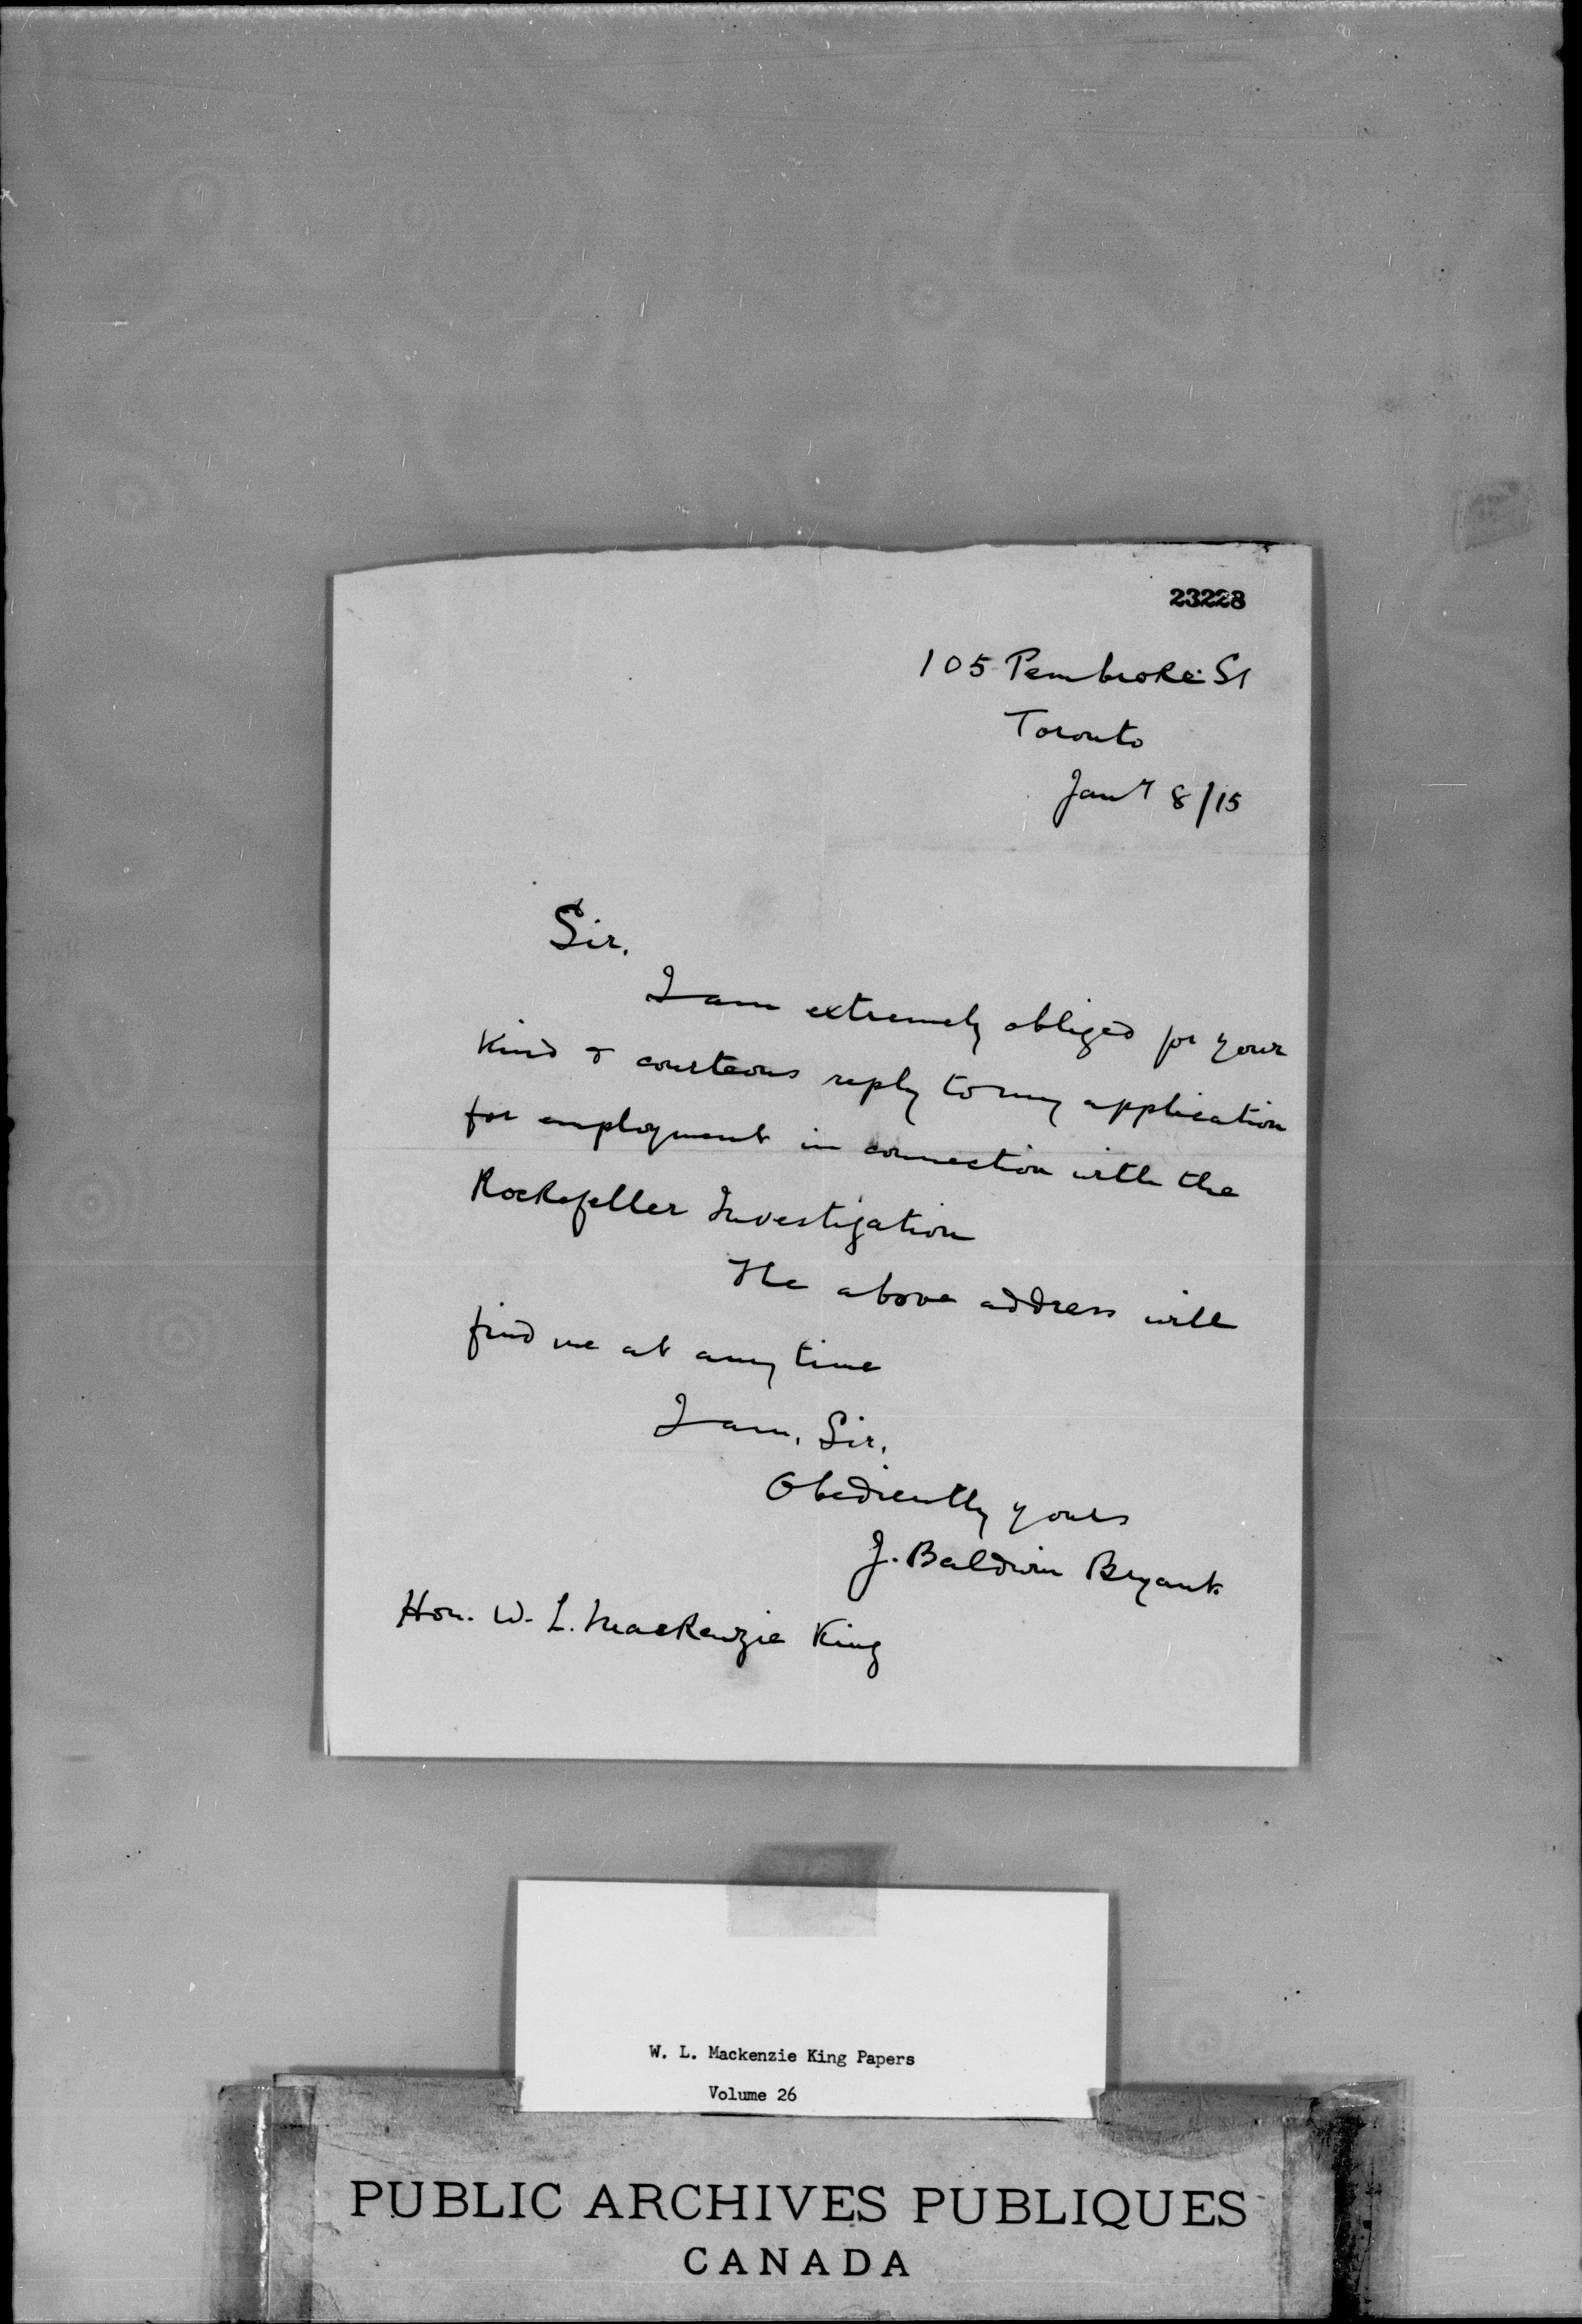 23228
105 Pembroke St
Toronto
Jany 8/15
Sir,
I am extremely obliged for your
kind & courteous reply to my application
for employment in connection with the
Rockefeller Investigation
The above address will
find me at any time
I am, Sir,
Obediently yours
J. Baldwin Bryant
Hon. W. L. MacKenzie King
W. L. Mackenzie King Papers
Volume 26
PUBLIC ARCHIVES PUBLIQUES
CANADA